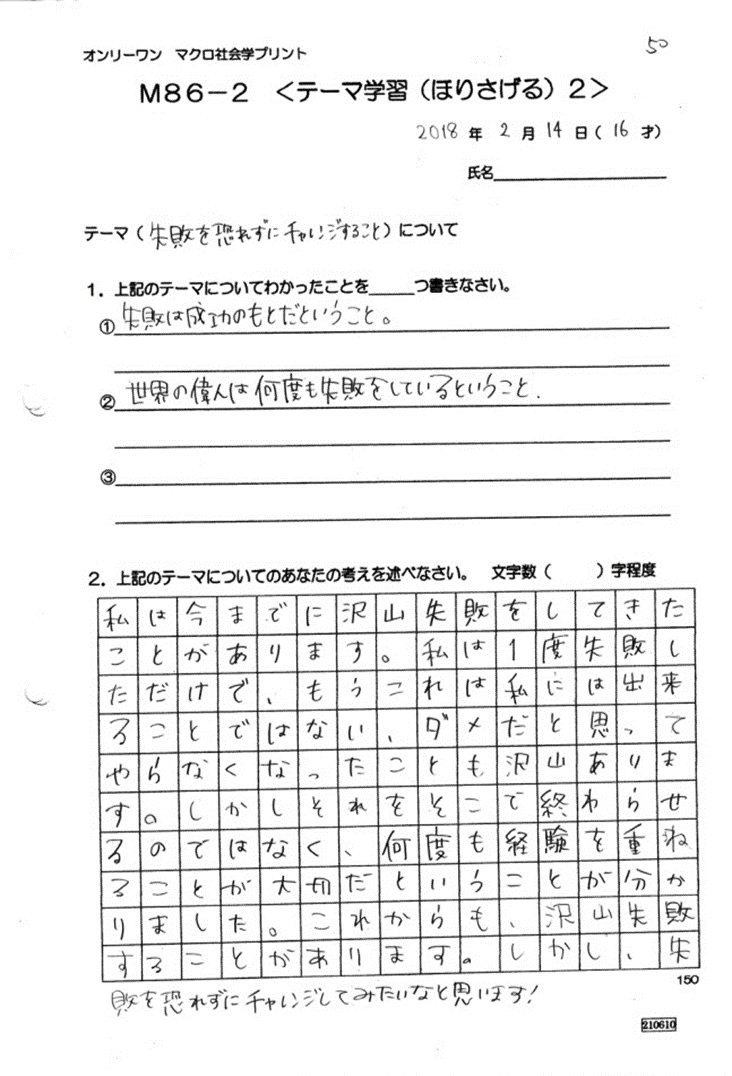 オンリーワン マクロ社会学プリント
50
M86-2 <テーマ学習(ほりさげる)2>
2018年2月14日(16才)
氏名
テーマ(失敗を恐れずにチャレンジすること)について
1. 上記のテーマについてわかったことを____つ書きなさい。
①失敗は成功のもとだということ。
②世界の偉人は何度も失敗をしているということ.
③
2. 上記のテーマについてのあなたの考えを述べなさい。 文字数( )字程度
私は今までに沢山失敗をしてきた
ことがあります。私は1度失敗し
ただけで、もうこれは私には出来
ることではない、ダメだと思って
やらなくなったことも沢山ありま
す。しかしそれをそこで終わらせ
るのではなく、何度も経験を重ね
ることが大切だということが分か
りました。これからも、沢山失敗
することがあります。しかし、失
150
敗を恐れずにチャレンジしてみたいなと思います!
210610